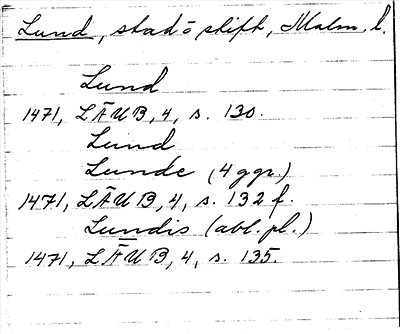 Lund, stad o stift, Malm. l.
Lund
1471, LÄUB, 4, s. 130.
Lund
Lunde (4 ggr.)
1471, LÄUB, 4, s. 132 f.
Lundis (abl. pl.)
1471, LÄUB, 4, s. 135.